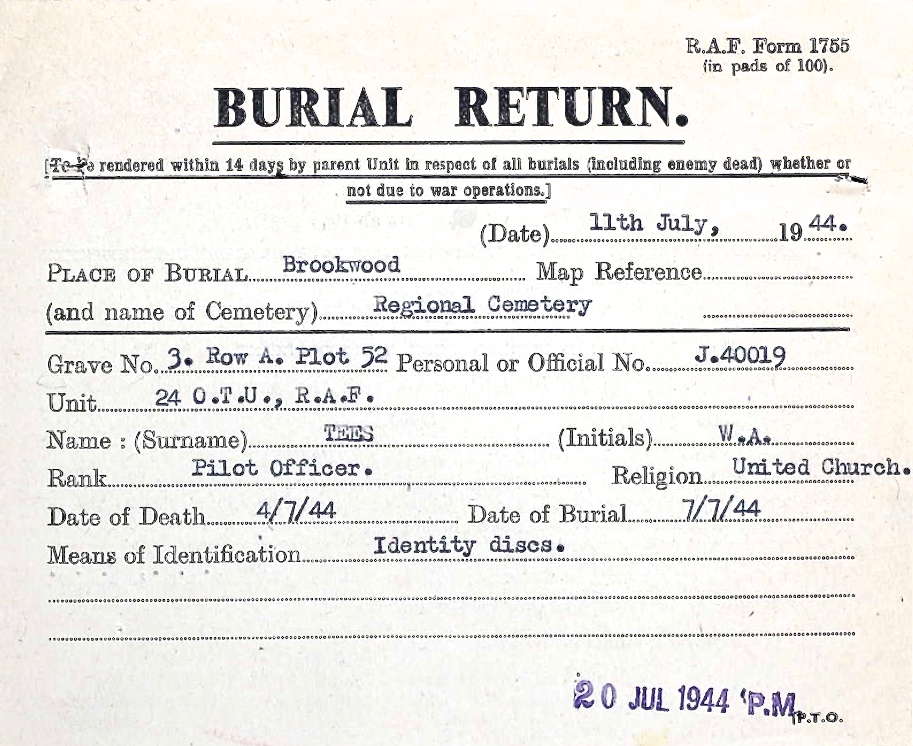 R.A.F. Form 1755
(in pads of 100).
BURIAL RETURN.
[To be rendered within 14 days by parent Unit in respect of all burials (including enemy dead) whether or
not due to war operations.]
(Date) 11th July, 1944.
PLACE OF BURIAL Brookwood Map Reference
(and name of Cemetery) Regional Cemetery
Grave No. 3. Row A. Plot 52 Personal or Official No. J.40019
Unit 24 O.T.U., R.A.F.
Name : (Surname) TEES (Initials) W.A.
Rank Pilot Officer. Religion United Church.
Date of Death 4/7/44 Date of Burial 7/7/44
Means of Identification Identity discs.
20 JUL 1944 P.M.
P.T.O.